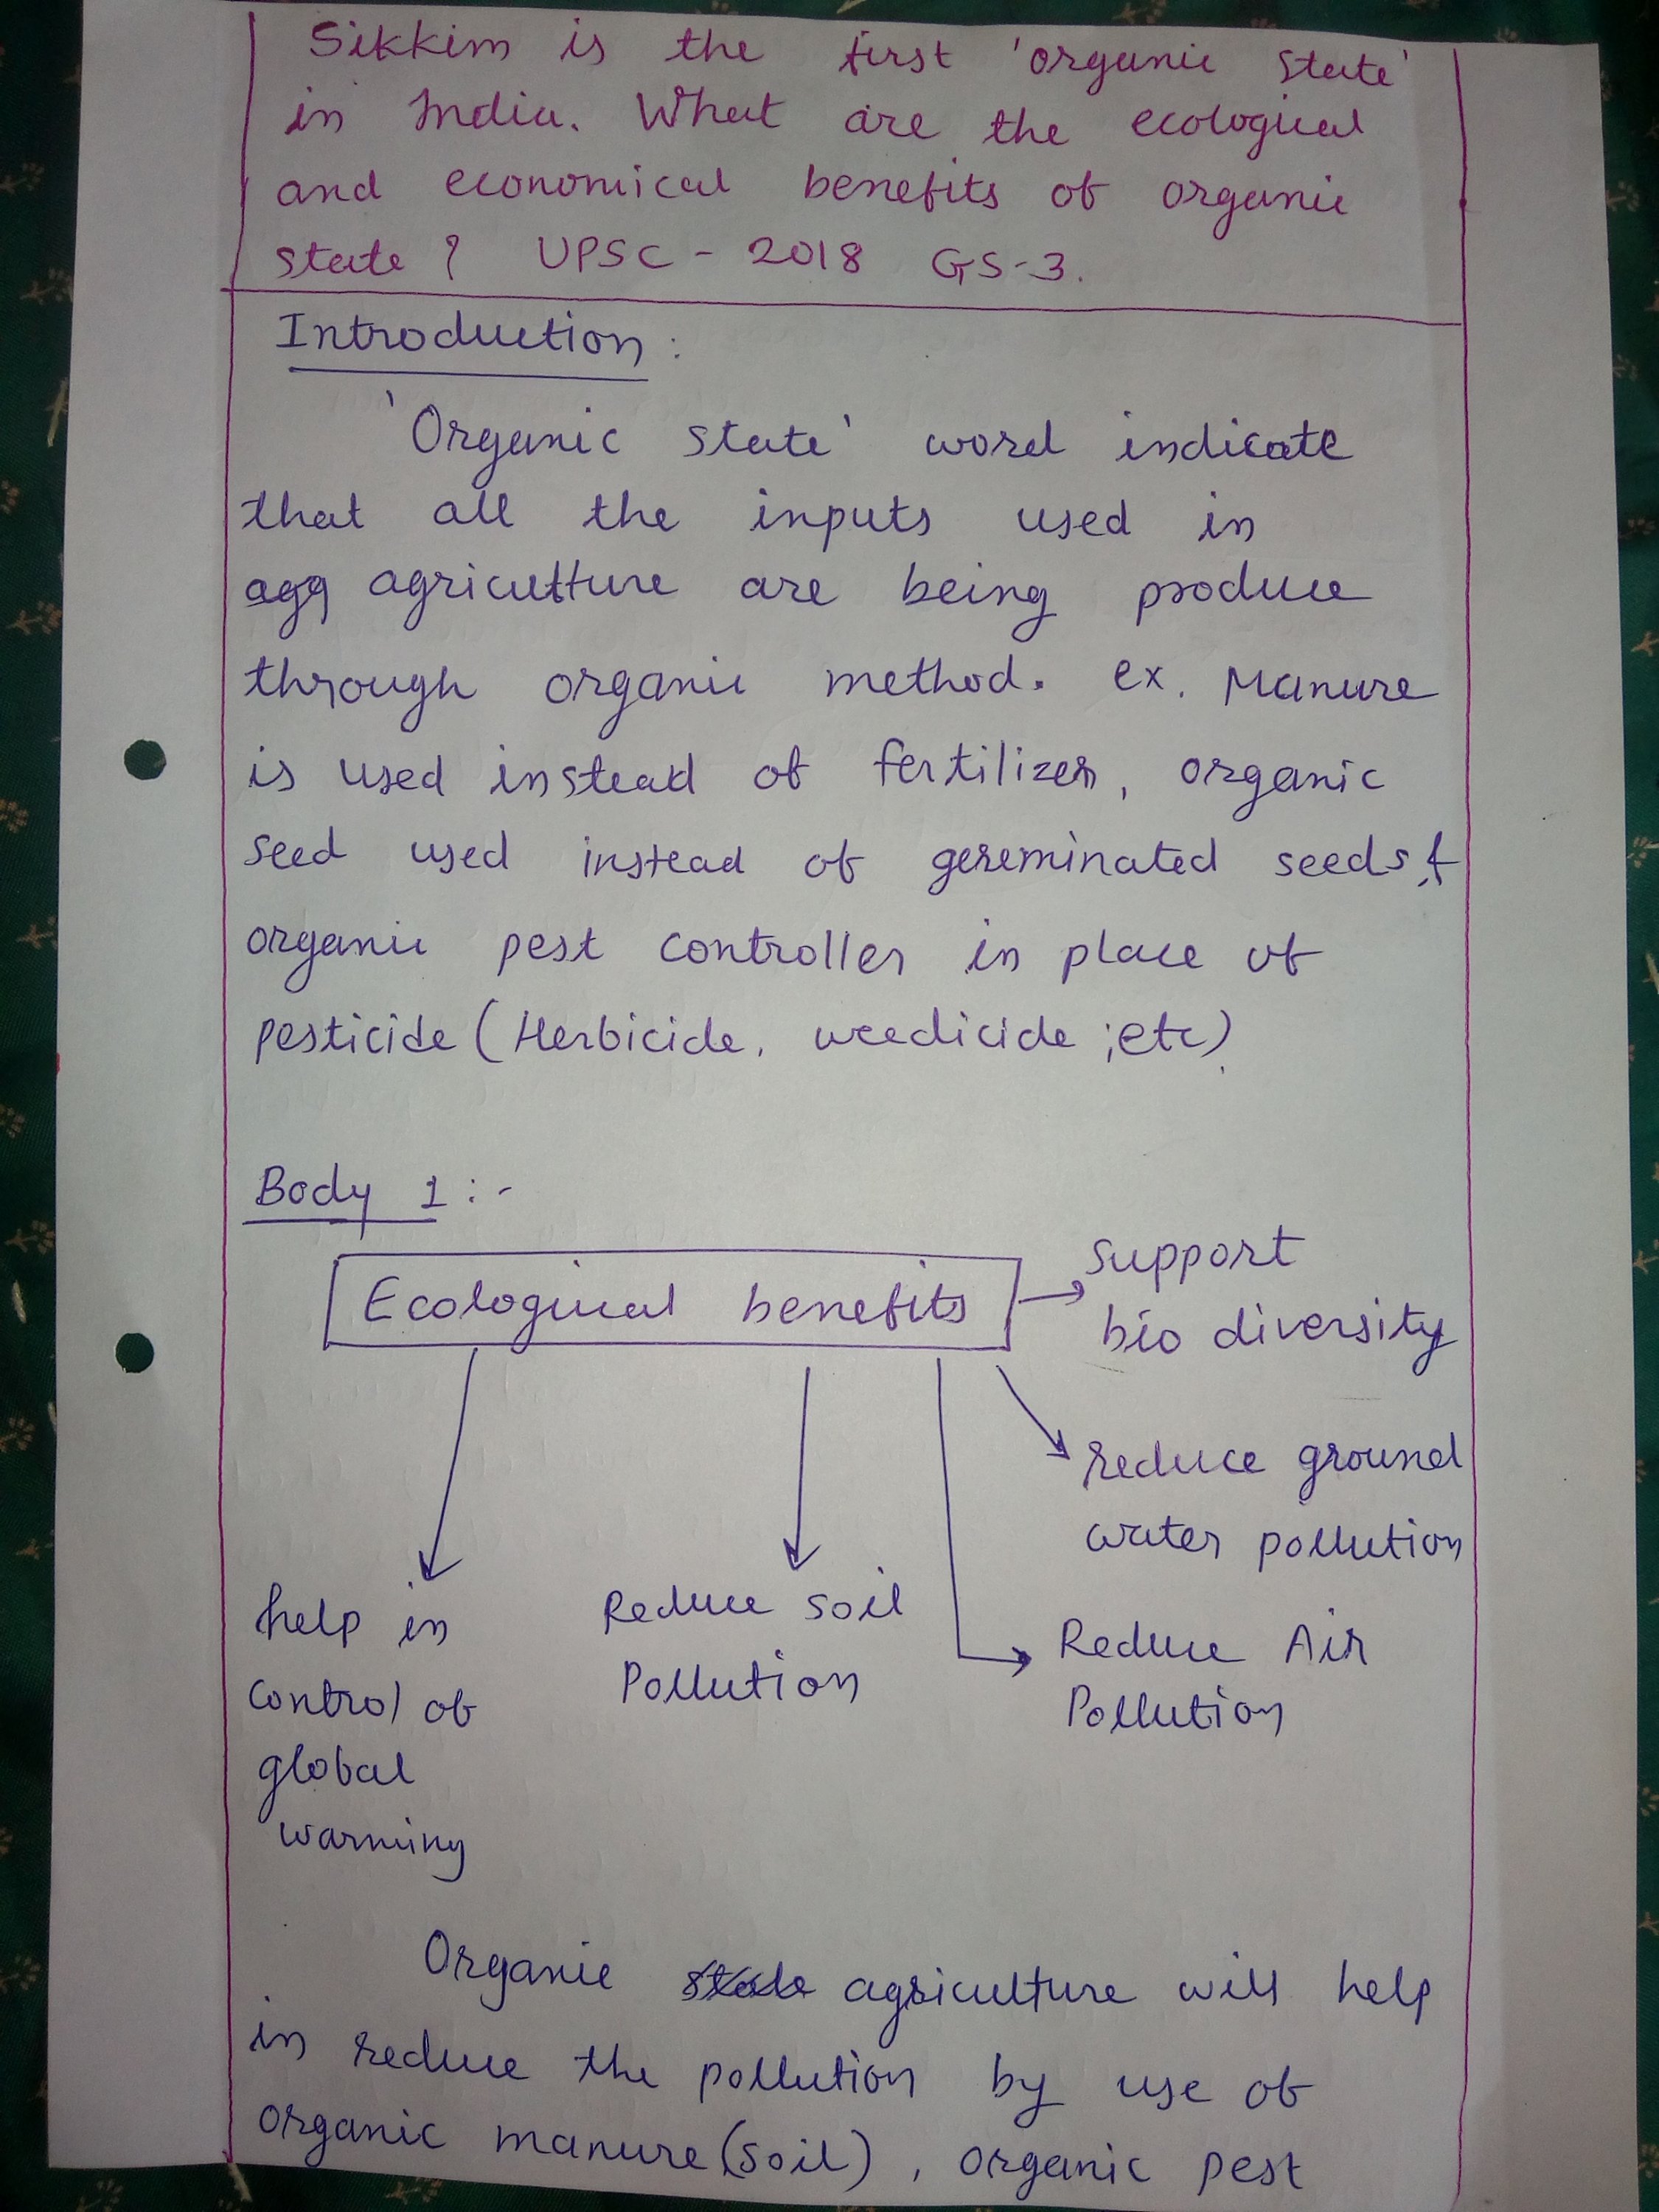 Sikkim is the first 'organic state'
in India. What are the ecological
and economical benefits of organic
state ? UPSC - 2018 GS-3.
Introduction :
'Organic state' word indicate
that all the inputs used in
agg agriculture are being produce
through organic method. ex. Manure
is used instead of fertilizer, organic
seed used instead of gereminated seeds &
organic pest controller in place of
pesticide (Herbicide, weedicide ; etc)
Body 1 :-
Ecological benefits
support
bio diversity
reduce ground
water pollution
Reduce Air
Pollution
Reduce soil
Pollution
help in
control of
global
warming
Organic agriculture will help
in reduce the pollution by use of
organic manure (soil) , organic pest